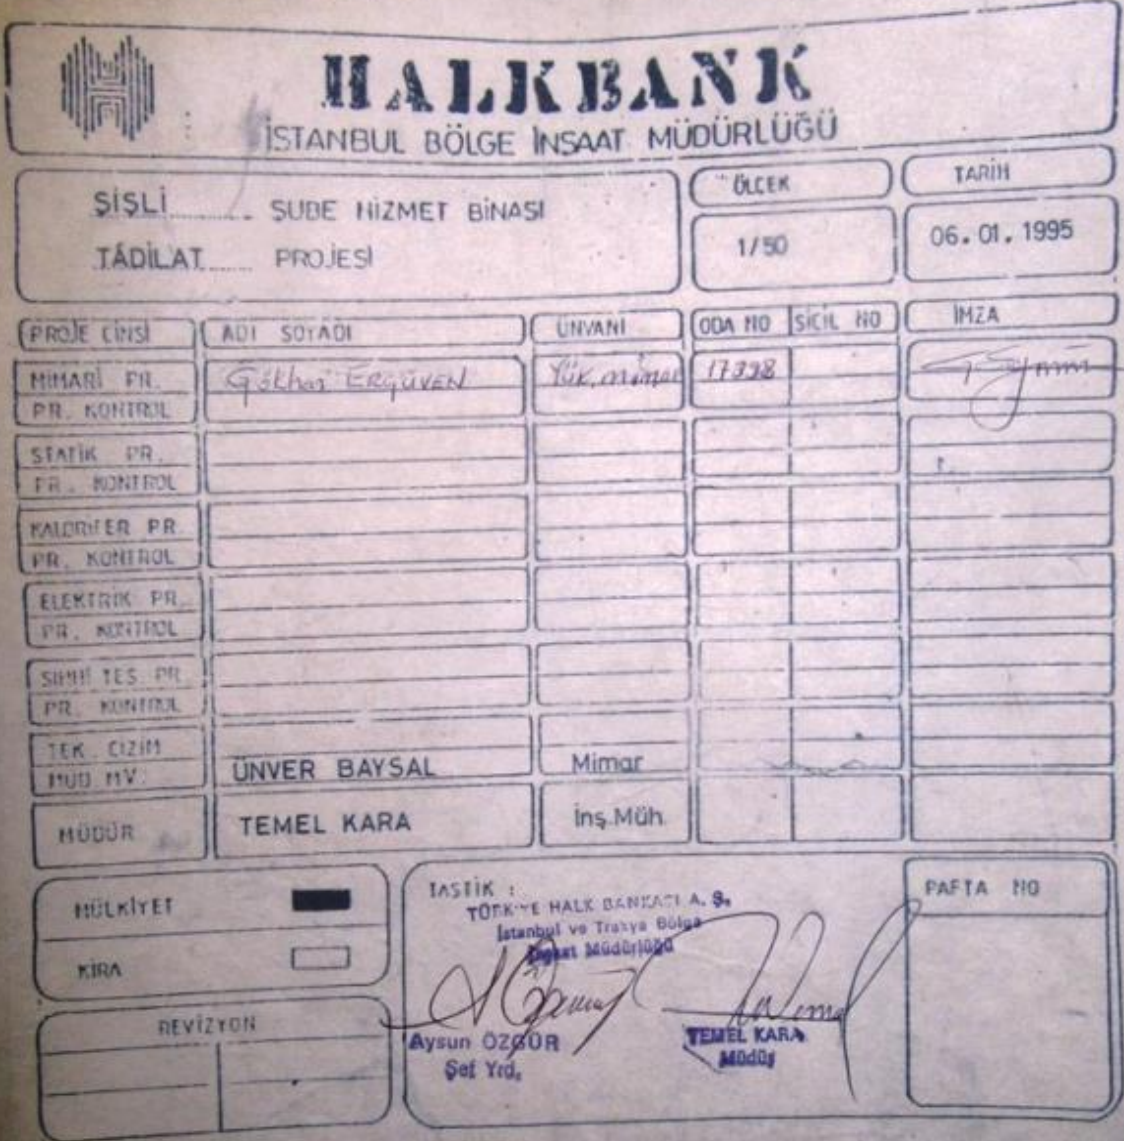 HALKBANK
İSTANBUL BÖLGE İNŞAAT MÜDÜRLÜĞÜ
ŞİŞLİ ŞUBE HİZMET BİNASI
TÂDİLAT PROJESİ
ÖLÇEK
1/50
TARİH
06.01.1995
PROJE CİNSİ ADI SOYADI ÜNVANI ODA NO SİCİL NO İMZA
MİMARİ PR. Gökhan ERGÜVEN Yük.mimar 17398
PR. KONTROL
STATİK PR.
PR. KONTROL
KALORİFER PR.
PR. KONTROL
ELEKTRİK PR.
PR. KONTROL
SIHHİ TES. PR.
PR. KONTROL
TEK. ÇİZİM
MÜD. MV. ÜNVER BAYSAL Mimar
MÜDÜR TEMEL KARA İnş.Müh.
MÜLKİYET
KİRA
REVİZYON
TASTİK :
TÜRKİYE HALK BANKASI A. Ş.
İstanbul ve Trakya Bölge
İnşaat Müdürlüğü
Aysun ÖZGÜR
Şef Yrd.
TEMEL KARA
Müdür
PAFTA NO